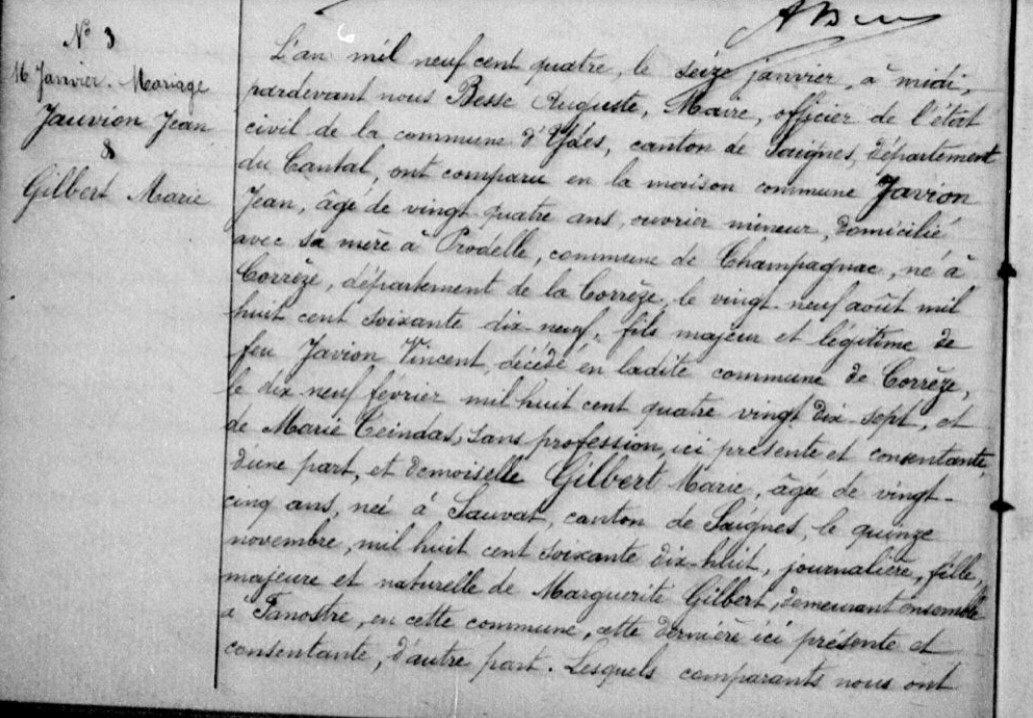 N° 3
16 Janvier. Mariage
Jauvion Jean
&
Gilbert Marie
L'an mil neuf cent quatre, le seize janvier, à midi,
pardevant nous Besse Auguste, Maire, officier de l'état
civil de la commune d'Ydes, canton de Saignes, département
du Cantal, ont comparu en la maison commune Javion
Jean, âgé de vingt-quatre ans, ouvrier mineur, domicilié
avec sa mère à Prodelle, commune de Champagnac, né à
Corrèze, département de la Corrèze, le vingt-neuf août mil
huit cent soixante dix-neuf, fils majeur et légitime de
feu Javion Vincent, décédé en ladite commune de Corrèze,
le dix neuf février mil huit cent quatre vingt dix-sept, et
de Marie Ceindas, sans profession, ici présente et consentante,
d'une part, et demoiselle Gilbert Marie, âgée de vingt-
cinq ans, née à Sauvat, canton de Saignes, le quinze
novembre, mil huit cent soixante dix-huit, journalière, fille,
majeure et naturelle de Marguerite Gilbert, demeurant ensemble
à Fanostre, en cette commune, cette dernière ici présente et
consentante, d'autre part. Lesquels comparants nous ont